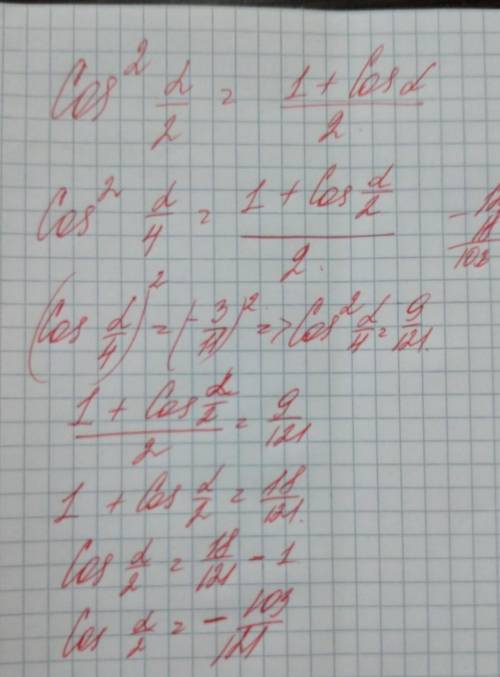 Cos² α/2 = (1 + Cos α)/2
Cos² α/4 = (1 + Cos α/2)/2.
(Cos α/4)² = (-3/11)² => Cos² α/4 = 9/121.
(1 + Cos α/2)/2 = 9/121
1 + Cos α/2 = 18/121.
Cos α/2 = 18/121 - 1
Cos α/2 = - 103/121